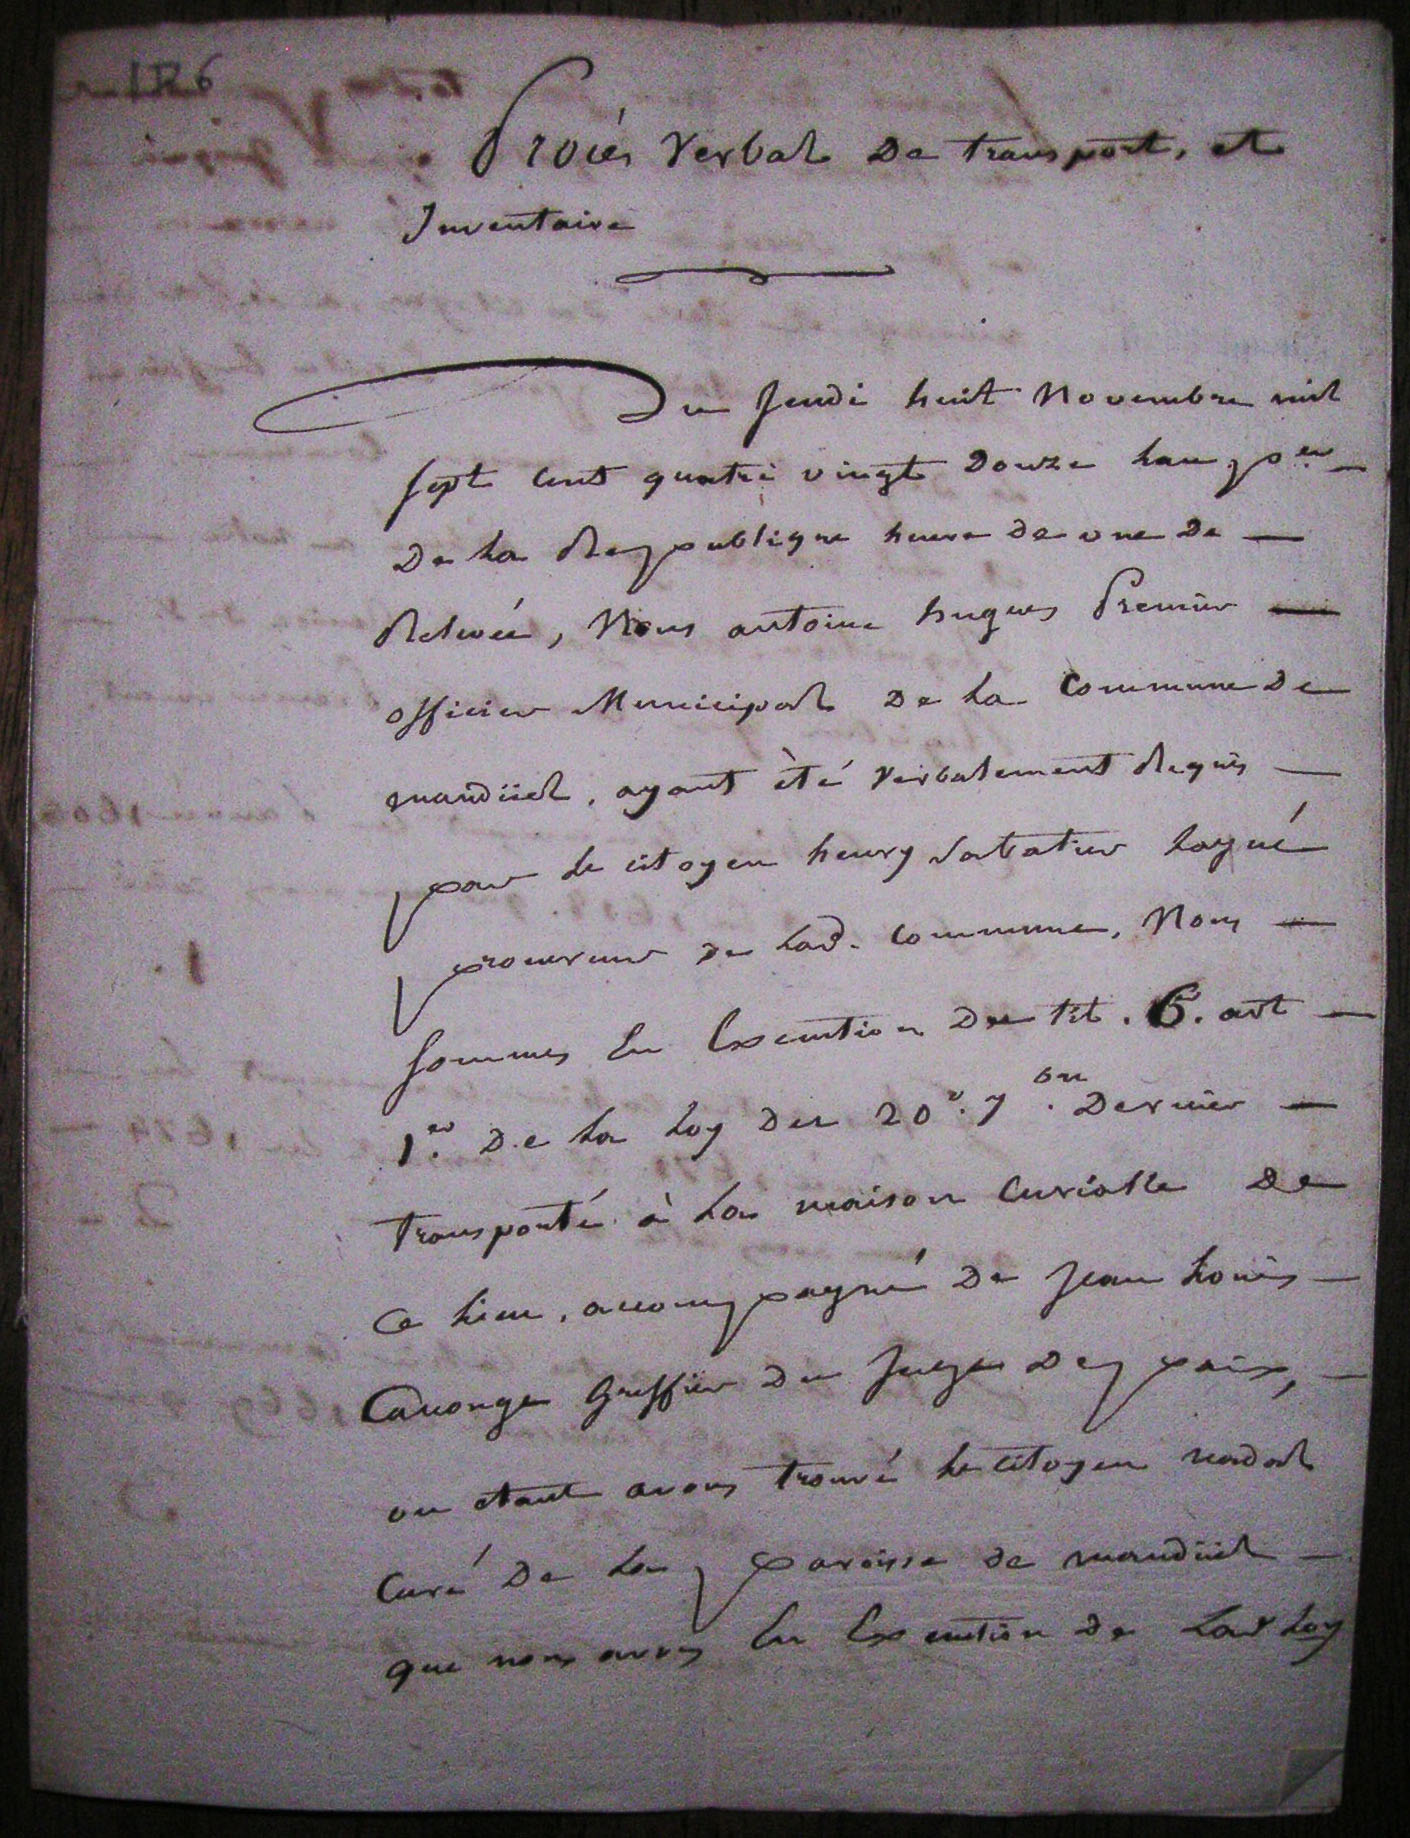 1 E 6
Procés Verbal De transport, et
Inventaire
Du Jeudi huit Novembre mil
sept cent quatre vingt Douze Lan per
De La Republique heure de une De
Relevée, Nous antoine hugues Premier
officier Municipal De La Commune De
manduel, ayant èté verbalement Requis
par Le citoyen henry Sabatier Layné
procureur de Lad. commune, Nous
sommes En Execution Du tit. 6. art
1er. De La Loy Du 20e. 7bre. Dernier
transporté à La maison Curialle De
Ce Lieu, accompagné De Jean Louis
Canonge Greffier Du Juge De paix,
ou etant avons trouvé Le citoyen nadal
Curé De La paroisse de manduel
que nous avons En Execution De Lad Loy